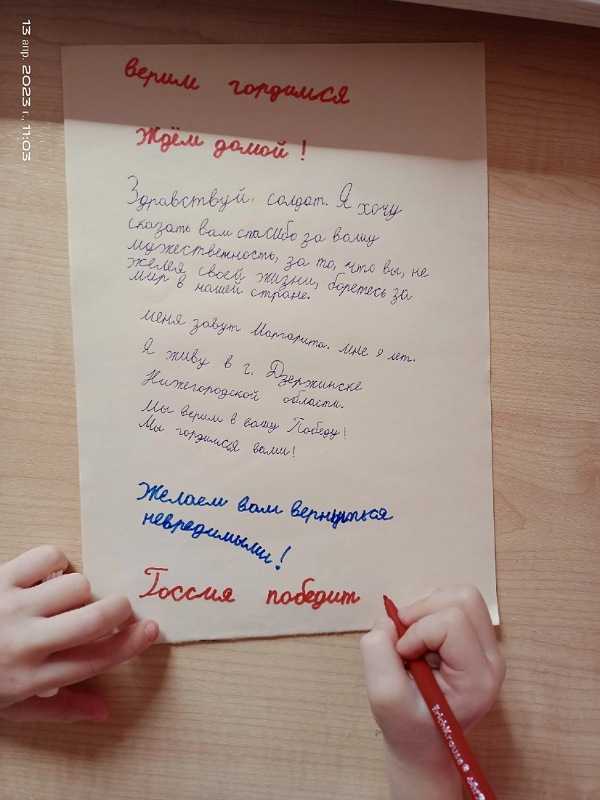 13 апр. 2023 г., 11:03
верим гордимся
Ждём домой!
Здравствуй солдат. Я хочу
сказать вам спасибо за вашу
мужественность, за то, что вы, не
желея своей жизни, боретесь за
мир в нашей стране.
меня зовут Маргарита. мне 9 лет.
Я живу в г. Дзержинске
Нижегородской области.
Мы верим в вашу Победу!
Мы гордимся вами!
Желаем вам вернуться
невредимыми!
Россия победит
ErichKrause®